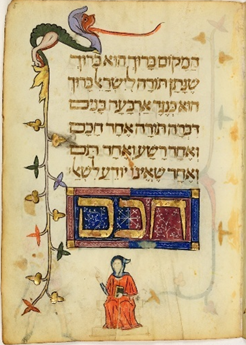 המקום ברוך הוא ברוך
שנתן תורה לישראל ברוך
הוא כנגד ארבעה בנים
דברה תורה אחד חכם
ואחד רשע ואחד תם
ואחד שאינו יודע לשא
חכם